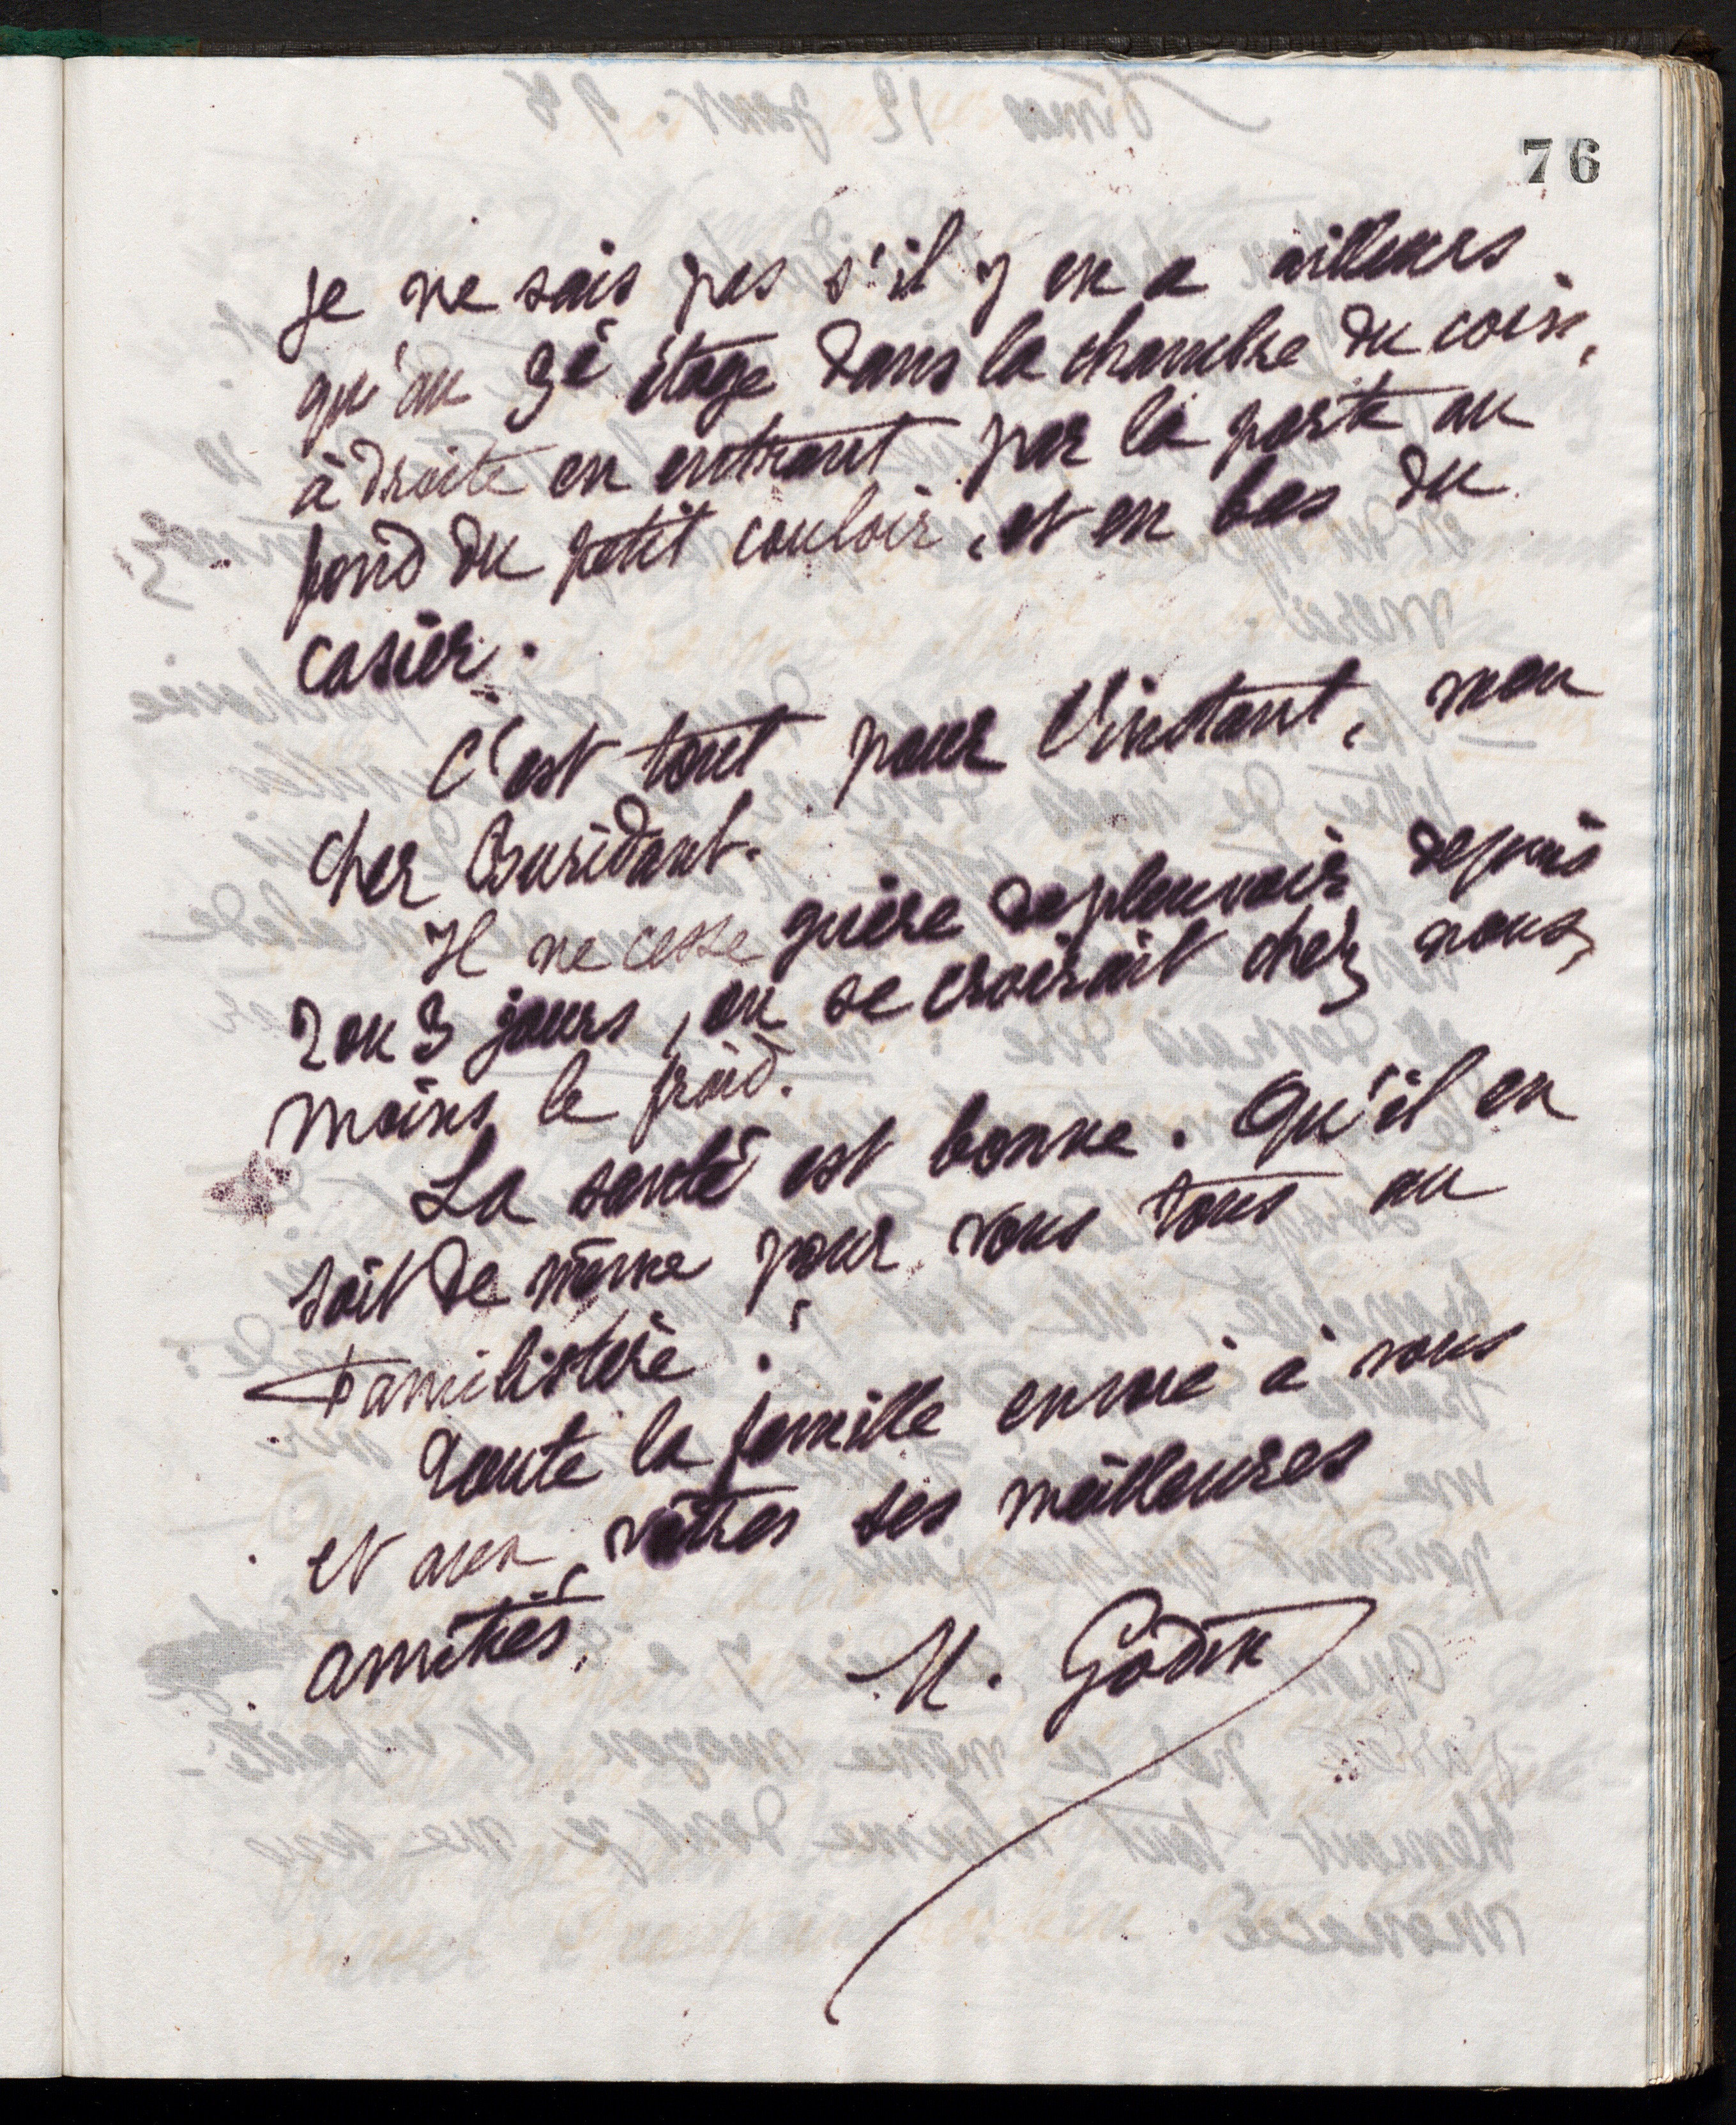 76
je ne sais pas s'il y en a ailleurs
qu'au 3e étage dans la chambre du coin,
à droite en entrant par la porte au
fond du petit couloir, et en bas du
casier.
C'est tout pour l'instant, mon
cher Buridant.
Il ne cesse guère de pleuvoir depuis
2 ou 3 jours, on se croirait chez nous,
moins le froid.
La santé est bonne. Qu'il en
soit de même pour vous tous au
Familistère !
Toute la famille envoie à vous
et aux vôtres ses meilleures
amitiés.
M. Godin